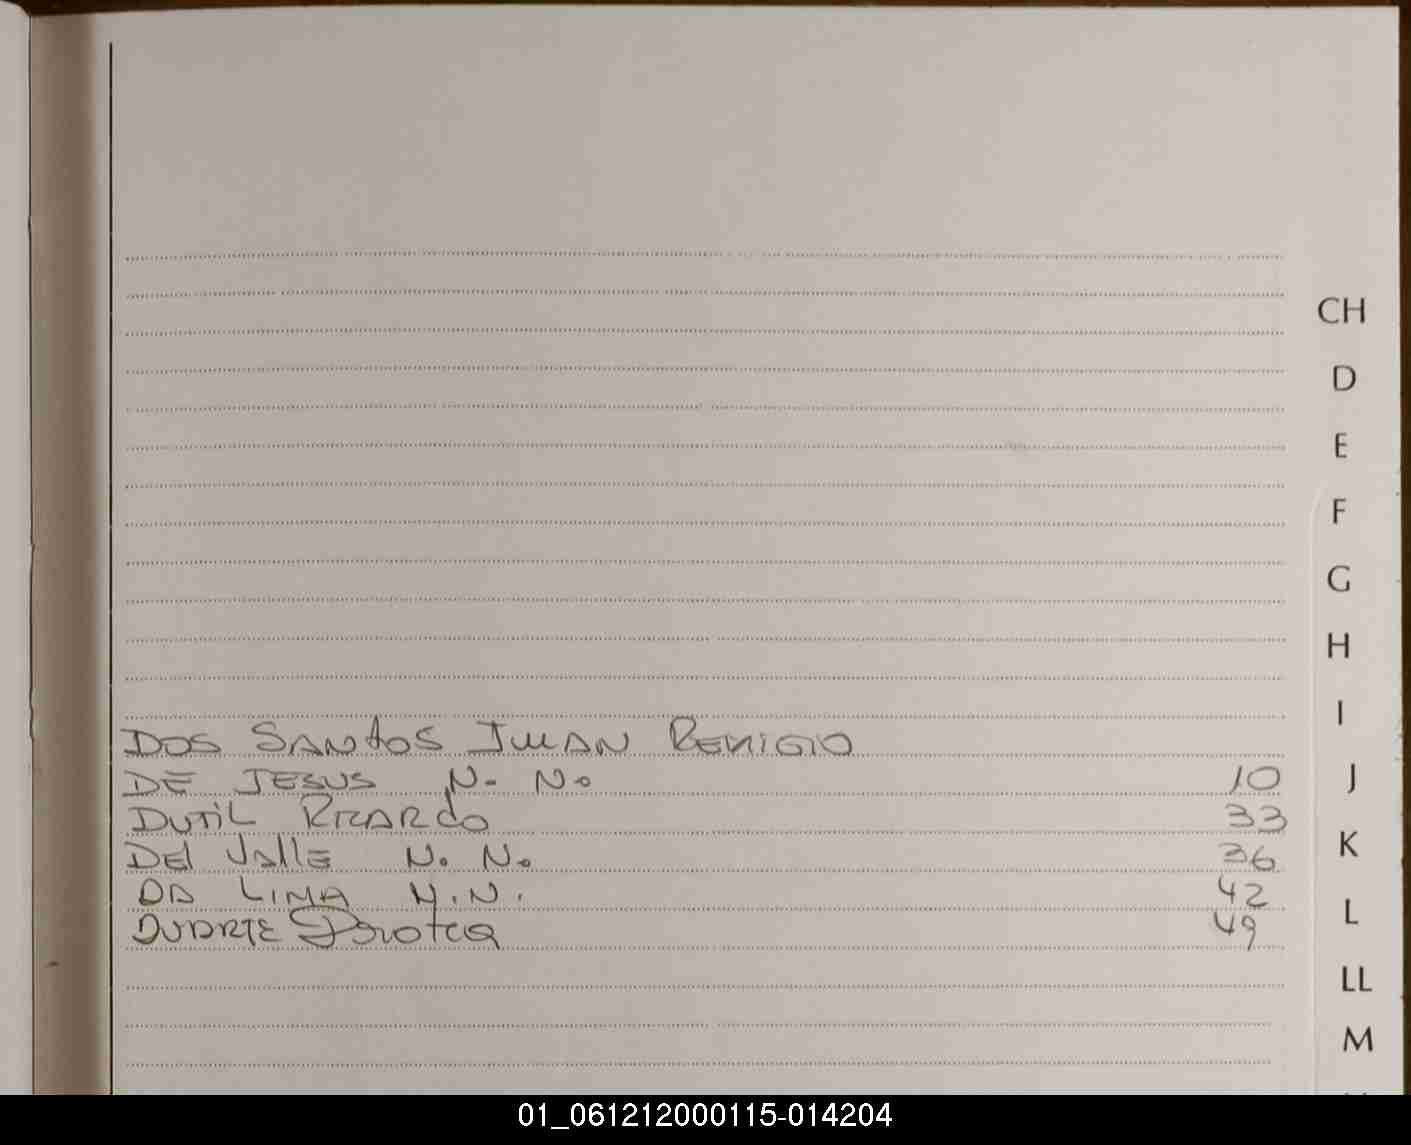 CH
D
E
F
G
H
I
DOS SANTOS JUAN REMIGIO
DE JESUS N. N. 10
J
DUTIL RICARDO 33
DEL VALLE N. N. 36
K
DA LIMA N.N. 42
L
DUARTE 49
LL
M
01_061212000115-014204